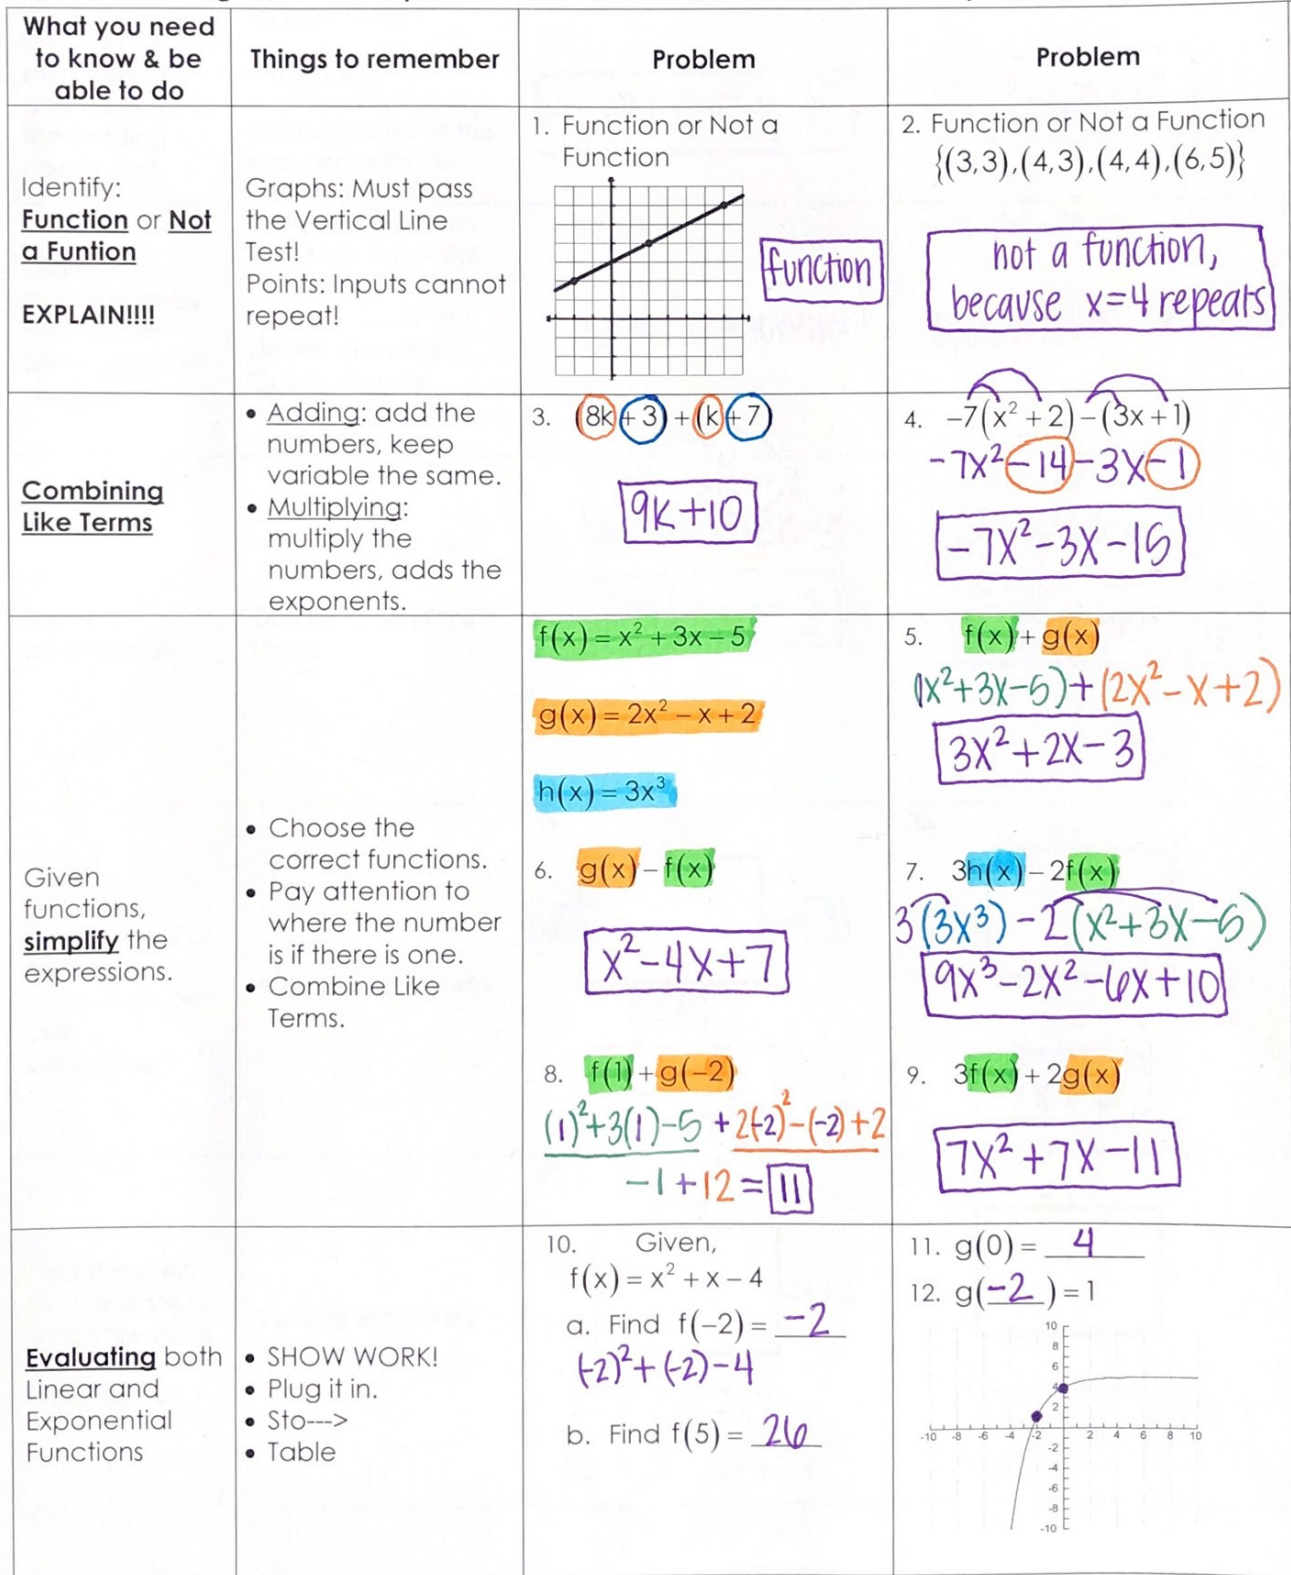 What you need
to know & be
able to do
Things to remember
Problem
Problem
Identify:
Function or Not
a Funtion
EXPLAIN!!!!
Graphs: Must pass
the Vertical Line
Test!
Points: Inputs cannot
repeat!
1. Function or Not a
Function
function
2. Function or Not a Function
{(3,3),(4,3),(4,4),(6,5)}
not a function,
because x=4 repeats
Combining
Like Terms
• Adding: add the
numbers, keep
variable the same.
• Multiplying:
multiply the
numbers, adds the
exponents.
3. (8k+3)+(k+7)
9k+10
4. −7(x²+2)−(3x+1)
-7x²-14-3x-1
-7x²-3x-15
Given
functions,
simplify the
expressions.
• Choose the
correct functions.
• Pay attention to
where the number
is if there is one.
• Combine Like
Terms.
f(x) = x² + 3x − 5
g(x) = 2x² − x + 2
h(x) = 3x³
5. f(x)+g(x)
(1x²+3x-5)+(2x²-x+2)
3x²+2x-3
6. g(x)−f(x)
x²-4x+7
7. 3h(x)−2f(x)
3(3x³)-2(x²+3x-5)
9x³-2x²-6x+10
8. f(1)+g(−2)
(1)²+3(1)-5 +2(-2)²-(-2)+2
-1+12=11
9. 3f(x)+2g(x)
7x²+7x-11
Evaluating both
Linear and
Exponential
Functions
• SHOW WORK!
• Plug it in.
• Sto--->
• Table
10. Given,
f(x) = x² + x − 4
a. Find f(−2) = -2
(-2)²+(-2)-4
b. Find f(5) = 26
11. g(0) = 4
12. g(-2) = 1
10
8
6
4
2
-10 -8 -6 -4 -2 2 4 6 8 10
-2
-4
-6
-8
-10